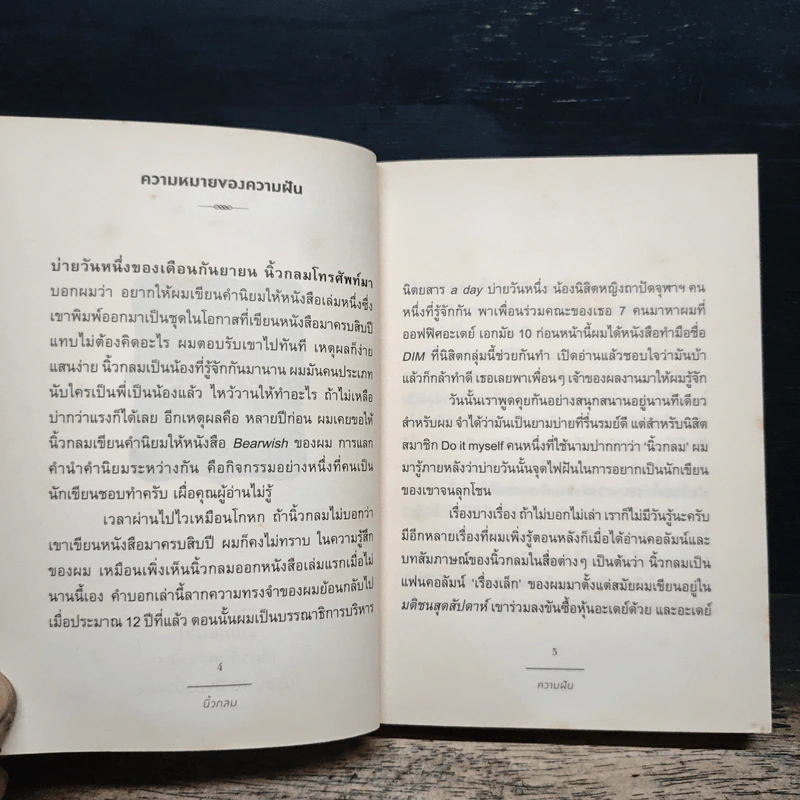 ความหมายของความฝัน
บ่ายวันหนึ่งของเดือนกันยายน นิ้วกลมโทรศัพท์มา
บอกผมว่า อยากให้ผมเขียนคำนิยมให้หนังสือเล่มหนึ่งซึ่ง
เขาพิมพ์ออกมาเป็นชุดในโอกาสที่เขียนหนังสือมาครบสิบปี
แทบไม่ต้องคิดอะไร ผมตอบรับเขาไปทันที เหตุผลก็ง่าย
แสนง่าย นิ้วกลมเป็นน้องที่รู้จักกันมานาน ผมมันคนประเภท
นับใครเป็นพี่เป็นน้องแล้ว ไหว้วานให้ทำอะไร ถ้าไม่เหลือ
บ่ากว่าแรงก็ได้เลย อีกเหตุผลคือ หลายปีก่อน ผมเคยขอให้
นิ้วกลมเขียนคำนิยมให้หนังสือ Bearwish ของผม การแลก
คำนำคำนิยมระหว่างกัน คือกิจกรรมอย่างหนึ่งที่คนเป็น
นักเขียนชอบทำครับ เผื่อคุณผู้อ่านไม่รู้
เวลาผ่านไปไวเหมือนโกหก ถ้านิ้วกลมไม่บอกว่า
เขาเขียนหนังสือมาครบสิบปี ผมก็คงไม่ทราบ ในความรู้สึก
ของผม เหมือนเพิ่งเห็นนิ้วกลมออกหนังสือเล่มแรกเมื่อไม่
นานนี้เอง คำบอกเล่านี้ลากความทรงจำของผมย้อนกลับไป
เมื่อประมาณ 12 ปีที่แล้ว ตอนนั้นผมเป็นบรรณาธิการบริหาร
4
นิ้วกลม
นิตยสาร a day บ่ายวันหนึ่ง น้องนิสิตหญิงถาปัดจุฬาฯ คน
หนึ่งที่รู้จักกัน พาเพื่อนร่วมคณะของเธอ 7 คนมาหาผมที่
ออฟฟิศอะเดย์ เอกมัย 10 ก่อนหน้านี้ผมได้หนังสือทำมือชื่อ
DIM ที่นิสิตกลุ่มนี้ช่วยกันทำ เปิดอ่านแล้วชอบใจว่ามันบ้า
แล้วก็กล้าทำดี เธอเลยพาเพื่อนๆ เจ้าของผลงานมาให้ผมรู้จัก
วันนั้นเราพูดคุยกันอย่างสนุกสนานอยู่นานทีเดียว
สำหรับผม จำได้ว่ามันเป็นยามบ่ายที่รื่นรมย์ดี แต่สำหรับนิสิต
สมาชิก Do it myself คนหนึ่งที่ใช้นามปากกาว่า ‘นิ้วกลม’ ผม
มารู้ภายหลังว่าบ่ายวันนั้นจุดไฟฝันในการอยากเป็นนักเขียน
ของเขาจนลุกโชน
เรื่องบางเรื่อง ถ้าไม่บอกไม่เล่า เราก็ไม่มีวันรู้นะครับ
มีอีกหลายเรื่องที่ผมเพิ่งรู้ตอนหลังก็เมื่อได้อ่านคอลัมน์และ
บทสัมภาษณ์ของนิ้วกลมในสื่อต่างๆ เป็นต้นว่า นิ้วกลมเป็น
แฟนคอลัมน์ ‘เรื่องเล็ก’ ของผมมาตั้งแต่สมัยผมเขียนอยู่ใน
มติชนสุดสัปดาห์ เขาร่วมลงขันซื้อหุ้นอะเดย์ด้วย และอะเดย์
5
ความฝัน